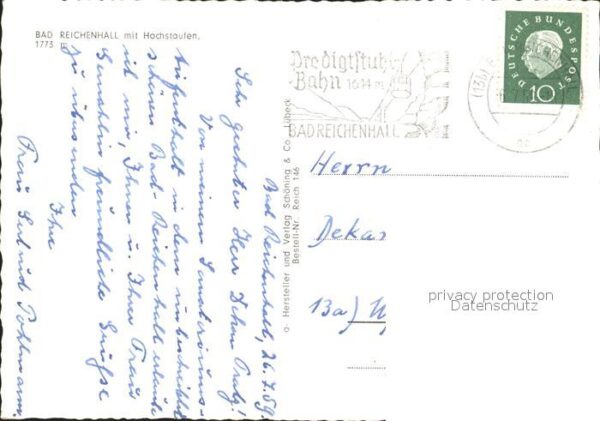 BAD REICHENHALL mit Hochstaufen,
1773 m
Bad Reichenhall, 26.7.59.
Sehr geehrter Herr Dekan
Von meinem Sanatoriums-
aufenthalt in dem unbeschreiblich
schönen Bad-Reichenhall erlaube
ich mir, Ihnen u. Ihrer Frau
Gemahlin freundliche Grüsse
zu übersenden
Ihre
Frau
a- Hersteller und Verlag Schöning & Co Lübeck
Bestell-Nr. Reich 146
Predigtstuhl
Bahn 1614 m
BAD REICHENHALL
DEUTSCHE BUNDESPOST
10
Herrn
Dekan
13a)
privacy protection
Datenschutz